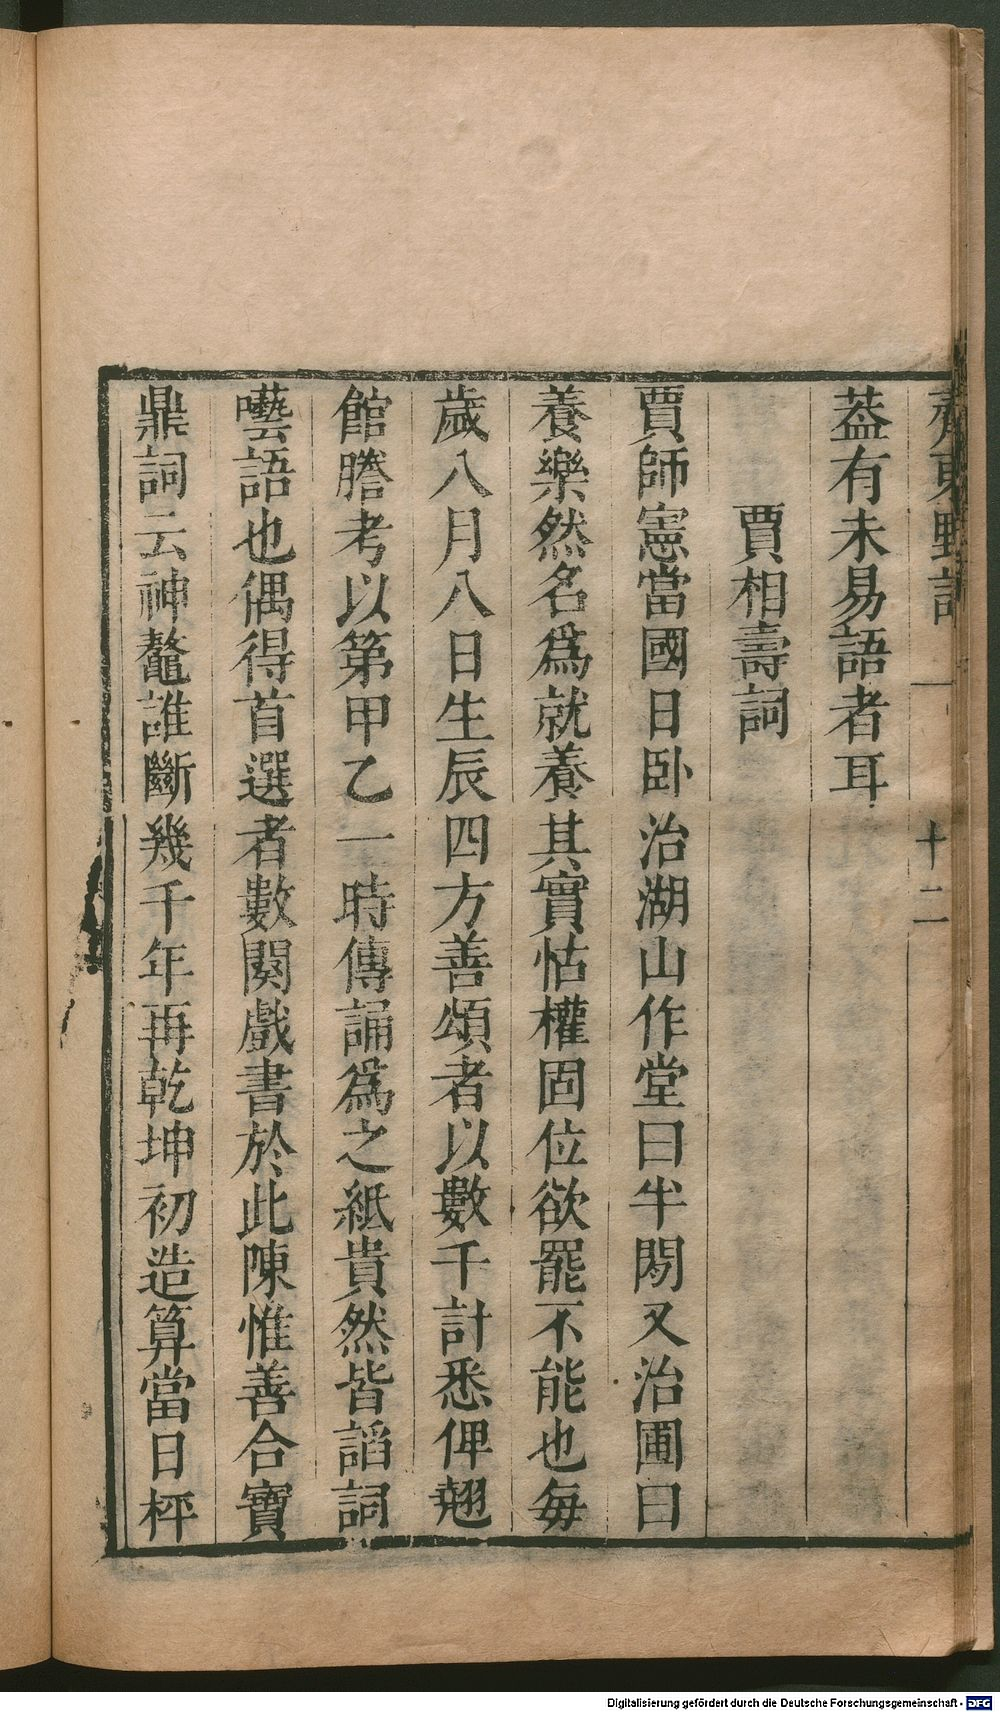 齊東野語 一 十二
葢有未易語者耳
賈相壽詞
賈師憲當國日卧治湖山作堂曰半閒又治圃曰
養樂然名爲就養其實怙權固位欲罷不能也每
歲八月八日生辰四方善頌者以數千計悉俾翹
館謄考以第甲乙一時傳誦爲之紙貴然皆諂詞
囈語也偶得首選者數闋戲書於此陳惟善合寶
鼎詞云神鼇誰斷幾千年再乾坤初造算當日枰
Digitalisierung gefördert durch die Deutsche Forschungsgemeinschaft - DFG